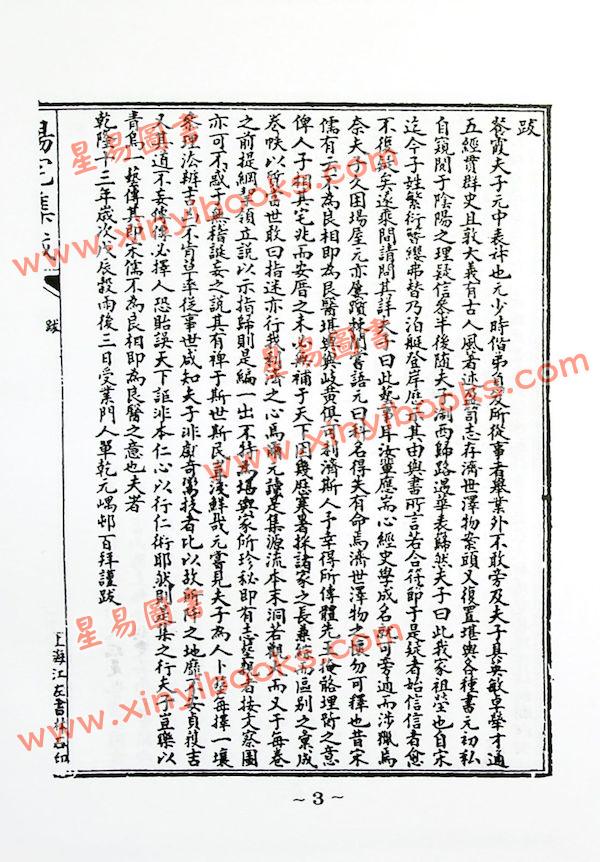 跋
餐霞夫子元中表許也元少時偕弟負笈所從事者舉業外不敢旁及夫子具英敏卓犖才通
五經貫群史且敦大義有古人風著述既富志存濟世澤物案頭又復置堪輿各種書元初私
自窺閱于陰陽之理疑信參半後隨夫子湖西歸路遇華表巋然夫子曰此我家祖塋也自宋
迄今子姓繁衍簪纓弗替乃泊艇登岸歷示其由與書所言若合符節于是疑者始信信者愈
不復疑矣遂乘間請問其詳夫子曰此藝事耳汝輩應耑心經史學成名就可旁通而涉獵焉
奈夫子久困場屋元亦屢躓棘闈嘗語元曰科名得失有命焉濟世澤物之懷勿可釋也昔宋
儒有云不為良相即為良醫堪輿與岐黃俱可利濟斯人予幸得所傳體先王掩骼埋胔之意
俾人子相其宅兆而安厝之未必無補于天下因幾歷寒暑採諸家之長兼綜而區別之彙成
卷帙以所當世敢曰指迷亦行我利濟之心焉爾元讀是集源流本末洞若觀火而又于每卷
之前提綱挈領立說以示指歸則是編一出不特為堪輿家所珍秘即有志斯藝者按文察圖
亦可不惑于無稽誕妄之說其有裨于斯世斯民豈淺鮮哉元嘗見夫子為人卜塋每擇一壤
察理法辨吉凶不肯草率從事世咸知夫子非戲奇騖技者比以故所阡之地靡不安貞獲吉
又其道不妄傳傳必擇人恐貽誤天下詎非本仁心以行仁術耶然則是集之行夫子豈聯以
青烏一藝傳其即宋儒不為良相即為良醫之意也夫者
乾隆十三年歲次戊辰穀雨後三日受業門人單乾元嵎邨百拜謹跋
陽宅集成
跋
上海江左書林石印
星易圖書
www.xinyibooks.com
星易圖書
www.xinyibooks.com
星易圖書
www.xinyibooks.com
~3~